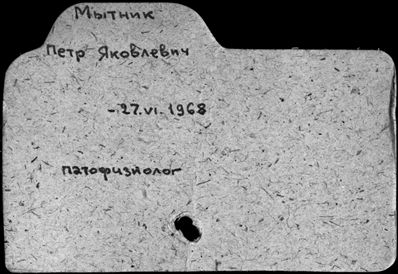 Мытник
Петр Яковлевич
- 27.VI.1968
патофизиолог